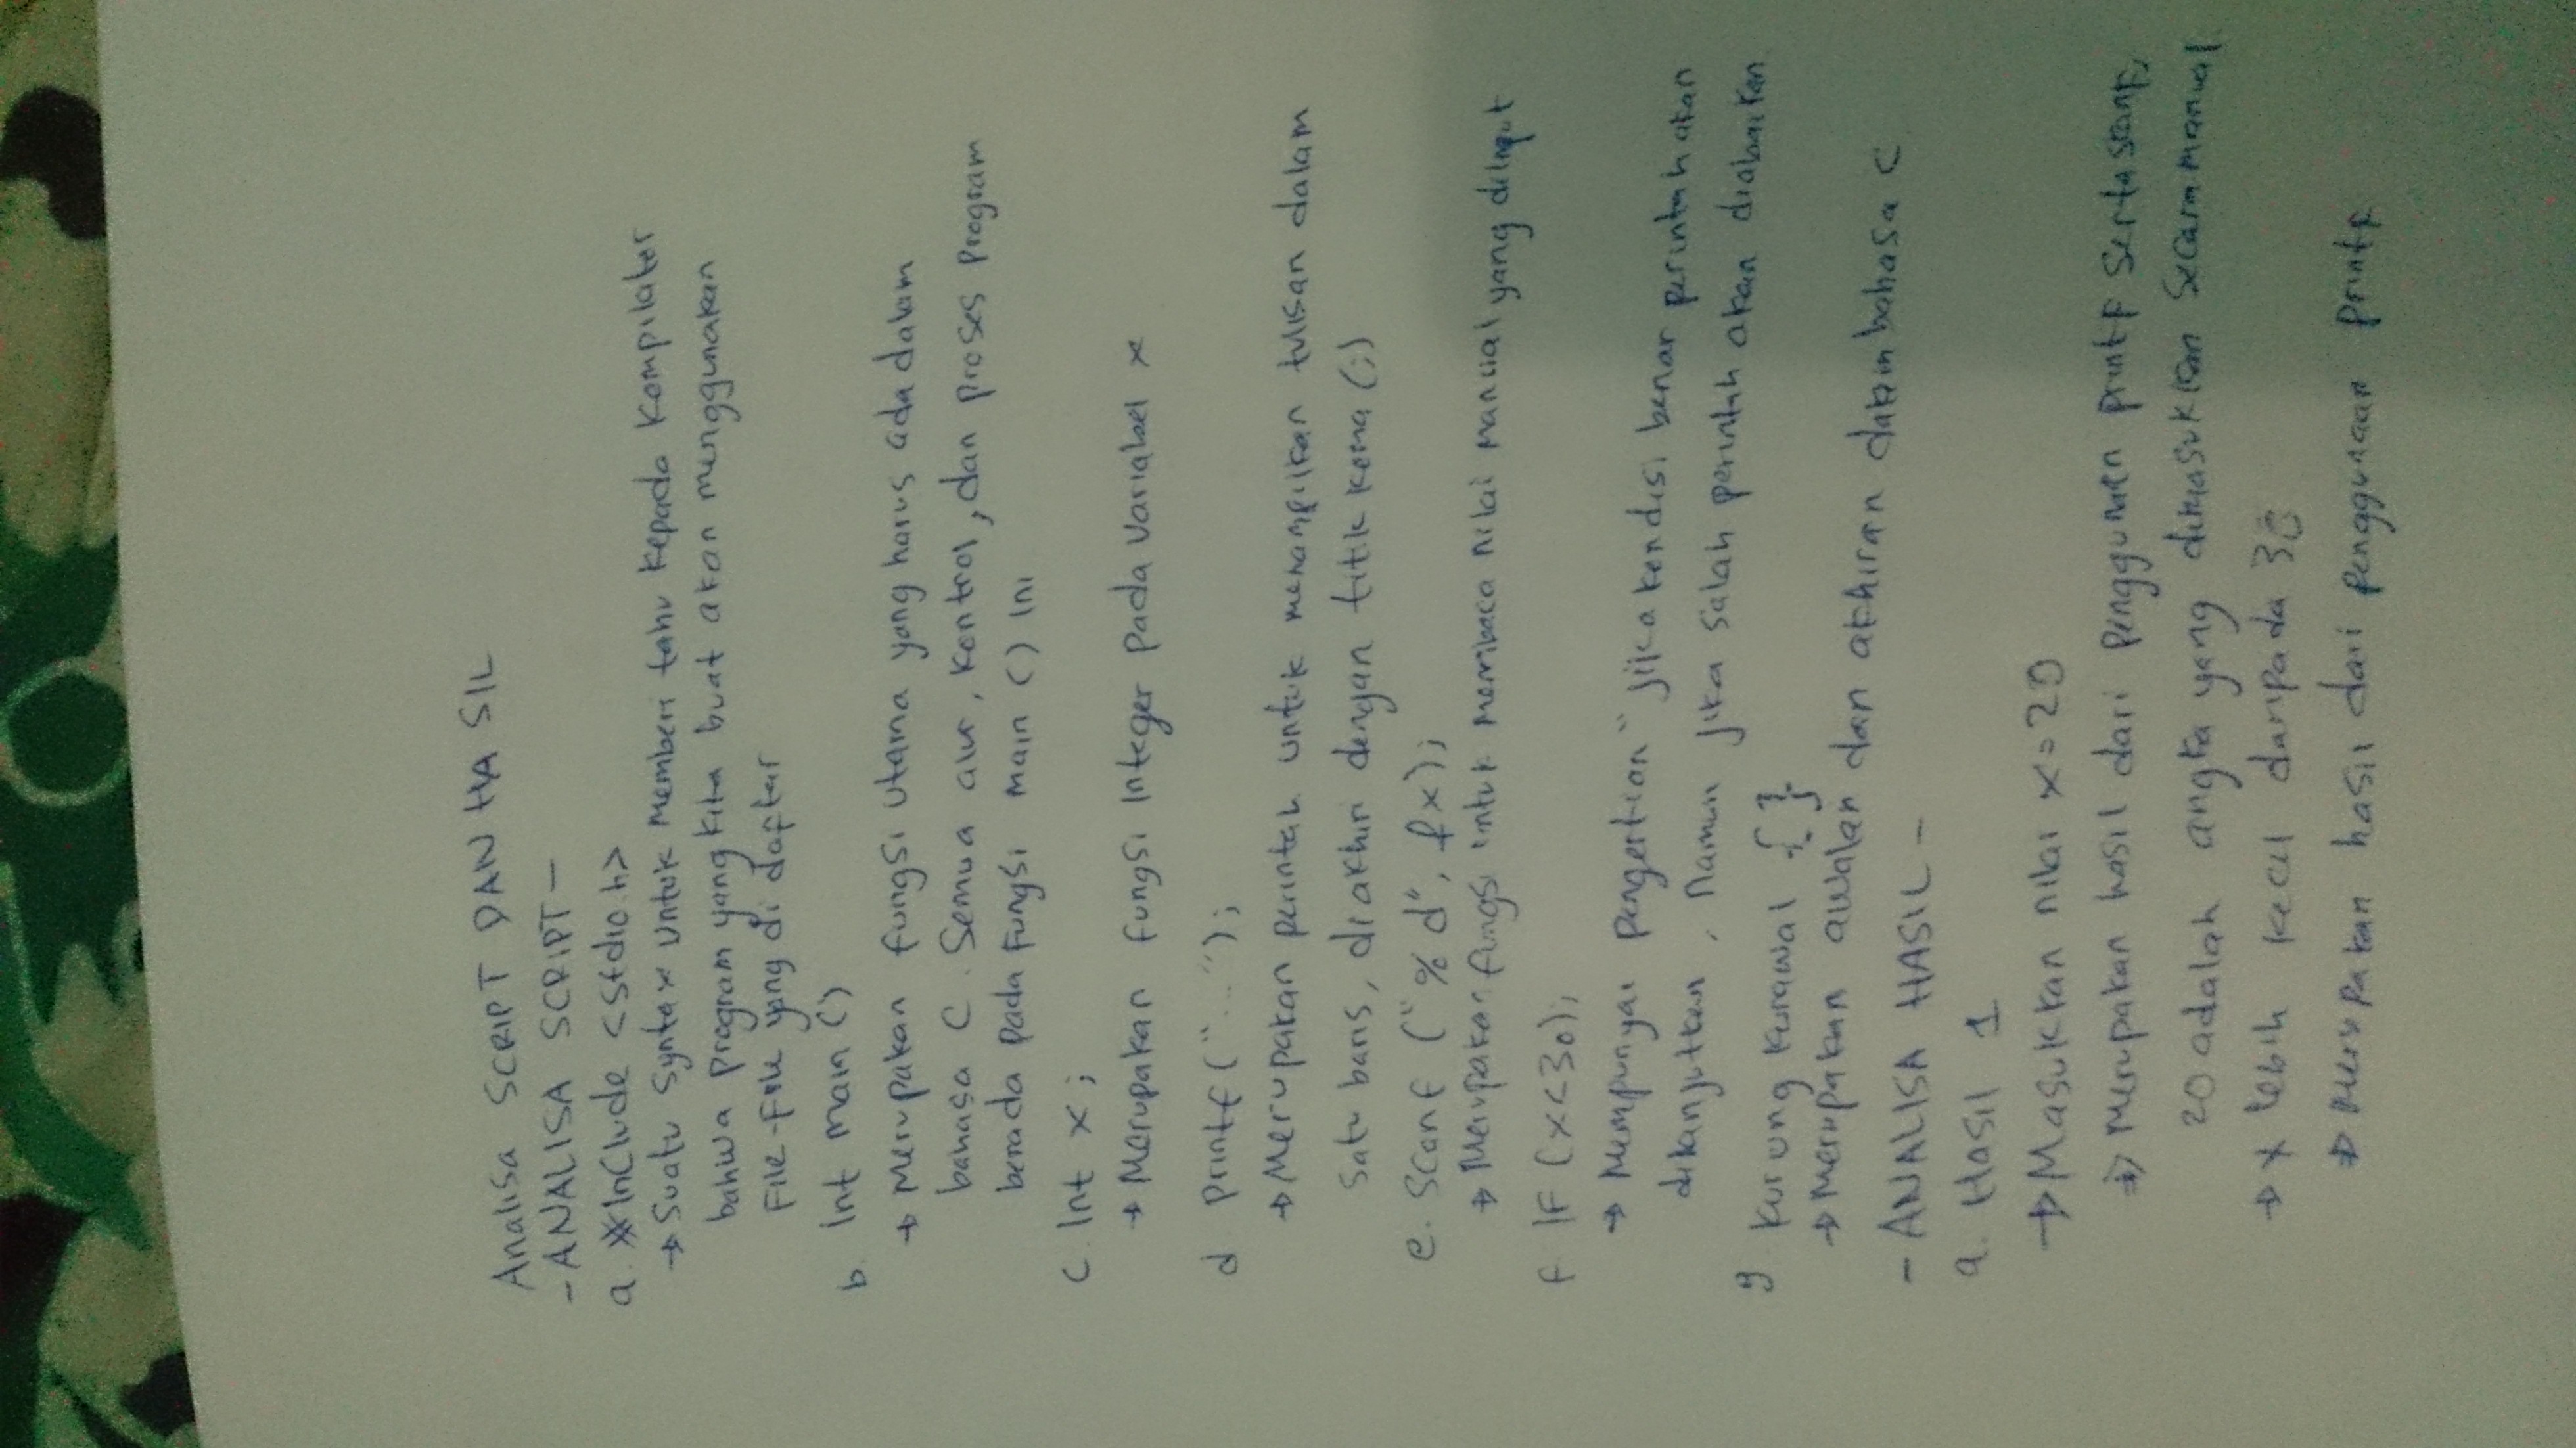 Analisa SCRIPT DAN HASIL
- ANALISA SCRIPT -
a. #Include <Stdio h>
→ Suatu Syntax untuk memberi tahu kepada Kompilator
bahwa program yang kita buat akan menggunakan
File-File yang di daftar
b. Int main ()
→ Merupakan fungsi utama yang harus ada dalam
bahasa C. Semua alur, kontrol, dan proses program
berada pada Fungsi main () ini
c. Int x;
→ Merupakan fungsi Integer pada Variabel x
d printf ("...");
→ Merupakan perintah untuk menampilkan tulisan dalam
satu baris, diakhiri dengan titik koma (;)
e. Scanf ("%d", &x);
→ Merupakan fungsi untuk membaca nilai manual yang diinput
f. IF (x<30);
→ Mempunyai pengertian "jika kondisi benar perintah akan
dilanjutkan, Namun jika salah perintah akan diabaikan
g. Kurung Kurawal { }
→ Merupakan awalan dan akhiran dalam bahasa C
- ANALISA HASIL -
a. Hasil 1
→ Masukkan nilai x = 20
→ Merupakan hasil dari penggunaan printf serta scanf,
20 adalah angka yang dimasukkan secara manual.
→ x lebih kecil daripada 30
→ Merupakan hasil dari penggunaan printf